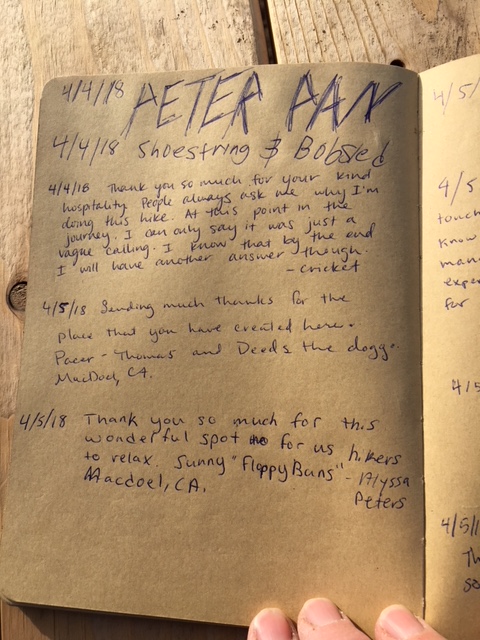 4/4/18 PETER PAN
4/4/18 Shoestring & Bobsled
4/4/18 Thank you so much for your kind
hospitality. People always ask me why I'm
doing this hike. At this point in the
journey, I can only say it was just a
vague calling. I know that by the end
I will have another answer though.
- Cricket
4/5/18 Sending much thanks for the
place that you have created here.
Pacer - Thomas and Deeds the doggo.
MacDoel, CA.
4/5/18 Thank you so much for this
wonderful spot for us hikers
to relax. Sunny "FloppyBuns" - Alyssa
Macdoel, CA. Peters
4/5/
4/5
touch
know
man
exper
for
4/5
4/5/1
Th
so